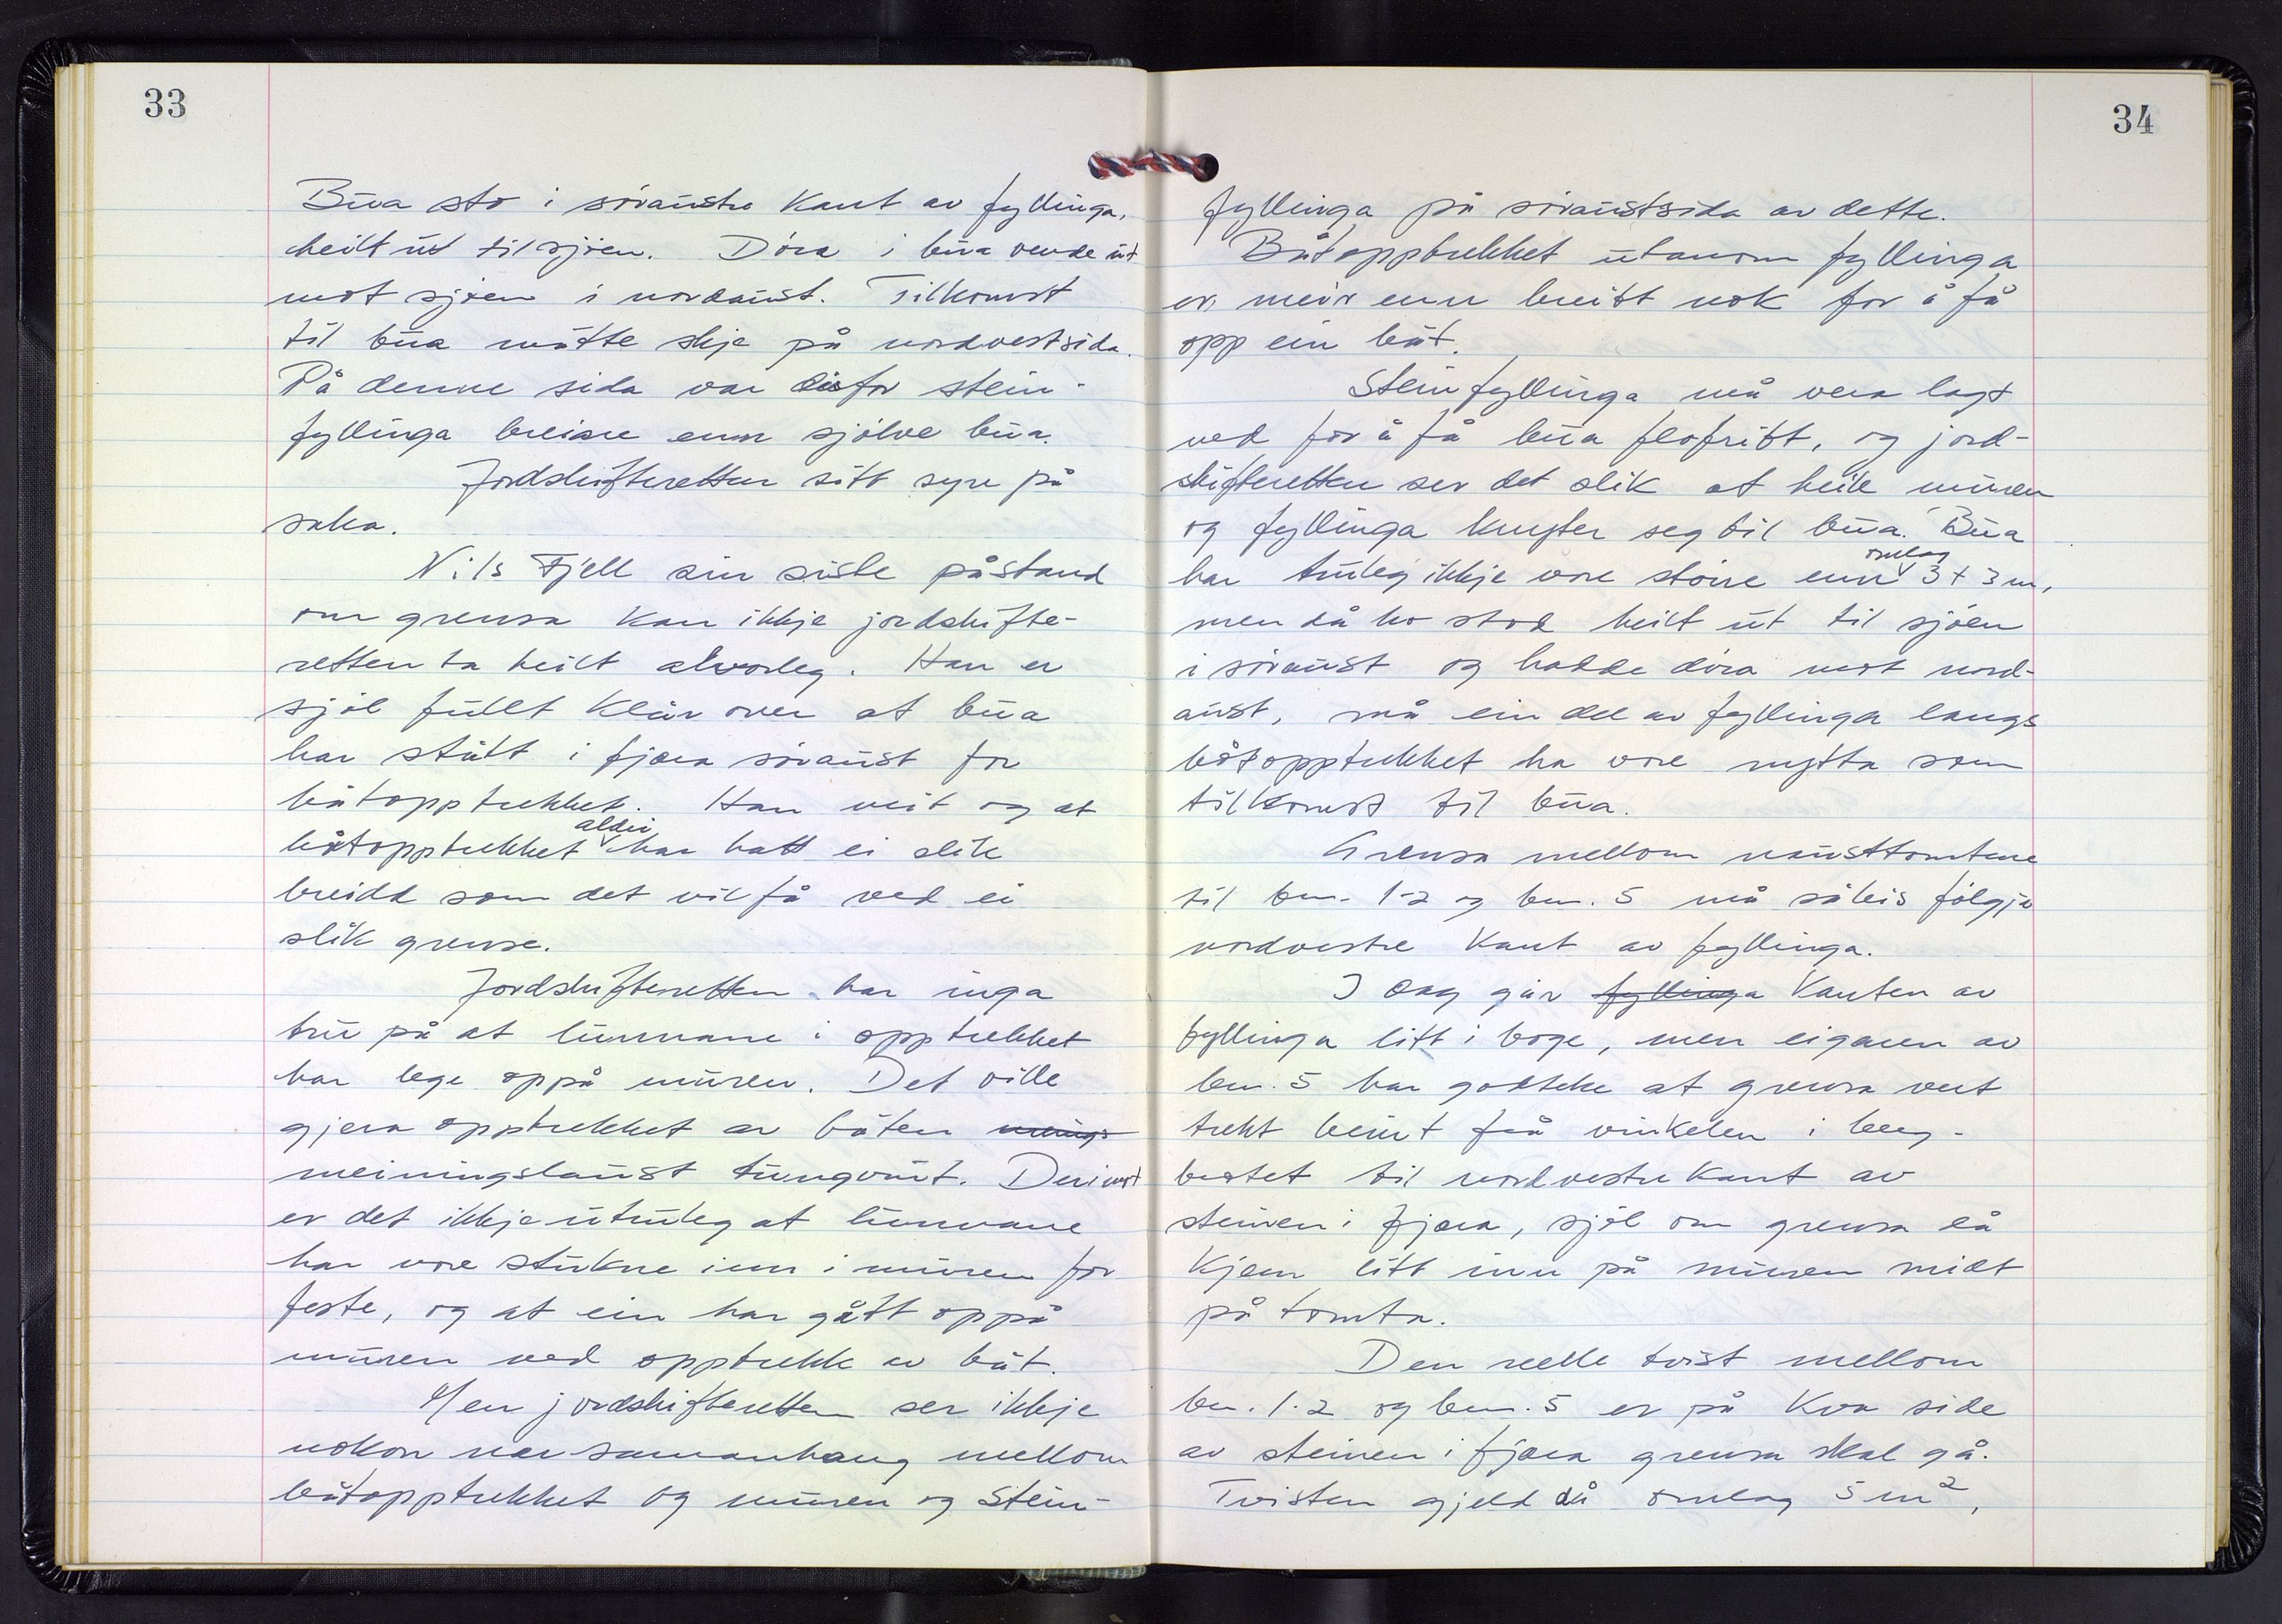 33
Bua sto i søraustre kant av fyllinga,
heilt ut til sjøen. Døra i bua vende ut
mot sjøen i nordaust. Tilkomst
til bua måtte skje på nordvestsida.
På denne sida var difor stein-
fyllinga breiare enn sjølve bua.
Jordskifteretten sitt syn på
saka.
Nils Fjell sin siste påstand
om grensa kan ikkje jordskifte-
retten ta heilt alvorleg. Han er
sjøl fullt klår over at bua
har stått i fjæra søraust for
båtopptrekket. Han veit og at
båtopptrekket aldri har hatt ei slik
breidd som det vil få ved ei
slik grense.
Jordskifteretten har inga
tru på at lunnane i opptrekket
har lege oppå muren. Det ville
gjera opptrekket av båten
meiningslaust tungvint. Derimot
er det ikkje utruleg at lunnane
har vore stukne inn i muren for
feste, og at ein har gått oppå
muren ved opptrekk av båt.
Men jordskifteretten ser ikkje
nokon nær samanheng mellom
båtopptrekket og muren og stein-
34
fyllinga på søraustsida av dette.
Båtopptrekket utanom fyllinga
er meir enn breitt nok for å få
opp ein båt.
Steinfyllinga må vera lagt
ned for å få bua flofritt, og jord-
skifteretten ser det slik at heile muren
og fyllinga knyter seg til bua. Bua
har truleg ikkje vore større enn omlag 3 + 3 m,
men då ho stod heilt ut til sjøen
i søraust og hadde døra mot nord-
aust, må ein del av fyllinga langs
båtopptrekket ha vore nytta som
tilkomst til bua.
Grensa mellom nausttomtene
til bnr. 1-2 og bnr. 5 må såleis følgja
nordvestre kant av fyllinga.
I dag går fyllinga kanten av
fyllinga litt i boge, men eigaren av
bnr. 5 har godteke at grensa vert
trekt beint frå vinkelen i berg-
bestet til nordvestre kant av
steinen i fjæra, sjøl om grensa då
kjem litt inn på muren midt
på tomta.
Den reelle tvist mellom
bnr. 1-2 og bnr. 5 er på kva side
av steinen i fjæra grensa skal gå.
Tvisten gjeld då omlag 5 m²,